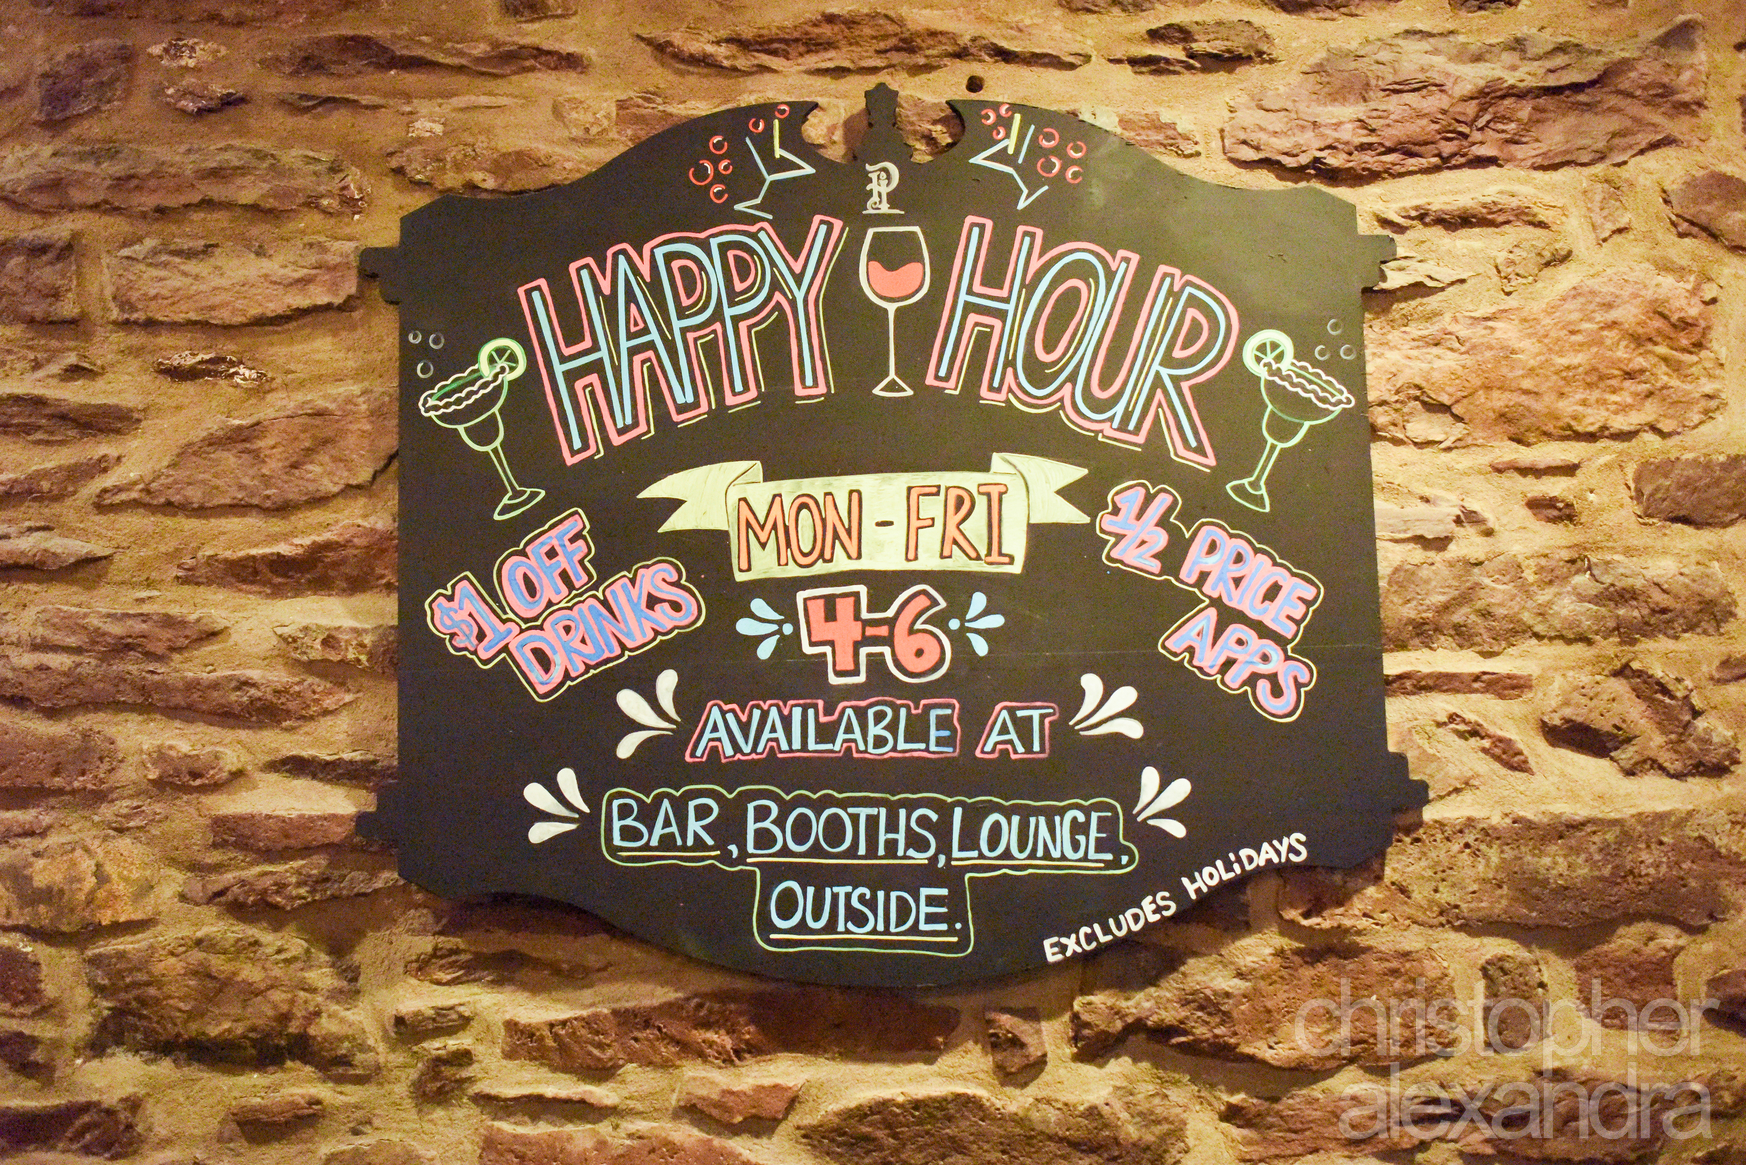 HAPPY HOUR
MON-FRI
4-6
$1 OFF
DRINKS
1/2 PRICE
APPS
AVAILABLE AT
BAR, BOOTHS, LOUNGE,
OUTSIDE.
EXCLUDES HOLiDAYS
christopher
alexandra